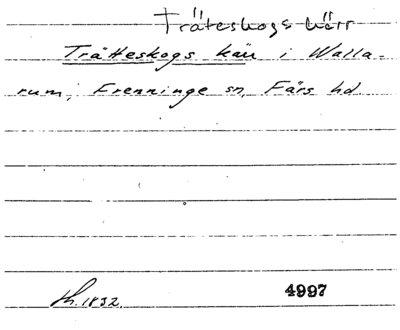 Träteskogs kärr
Trätteskogs kärr i Walla-
rum, Frenninge sn, Färs hd
Sk. 1832.
4997